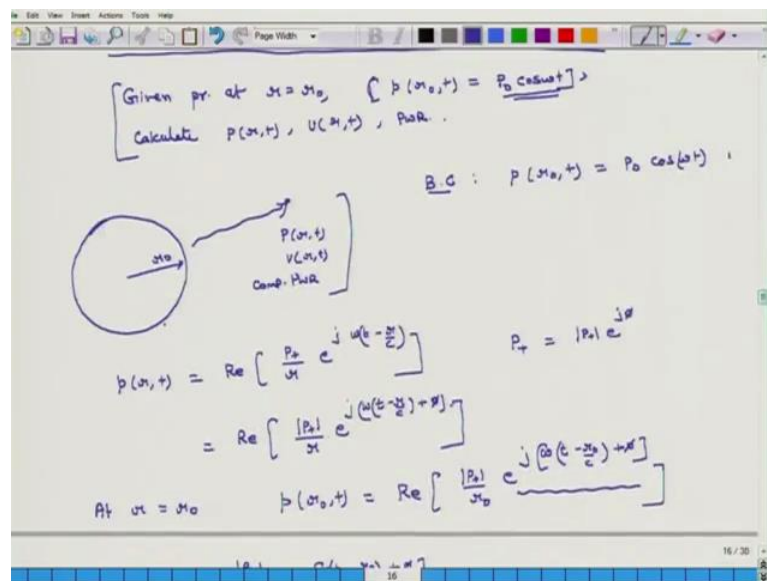 Edit View Insert Actions Tools Help
Page Width
Given pr. at r = r₀, [ p(r₀,t) = P₀ cosωt ],
Calculate p(r,t), U(r,t), PWR.
B.C : p(r₀,t) = P₀ cos(ωt)
r₀
P(r,t)
V(r,t)
Comp. PWR
p(r,t) = Re [ P₊/r e^{j ω(t - r/c)} ] P₊ = |P₊| e^{jø}
= Re [ |P₊|/r e^{j[ω(t - r/c) + ø]} ]
At r = r₀ p(r₀,t) = Re [ |P₊|/r₀ e^{j[ω(t - r₀/c) + ø]} ]
16 / 30
16